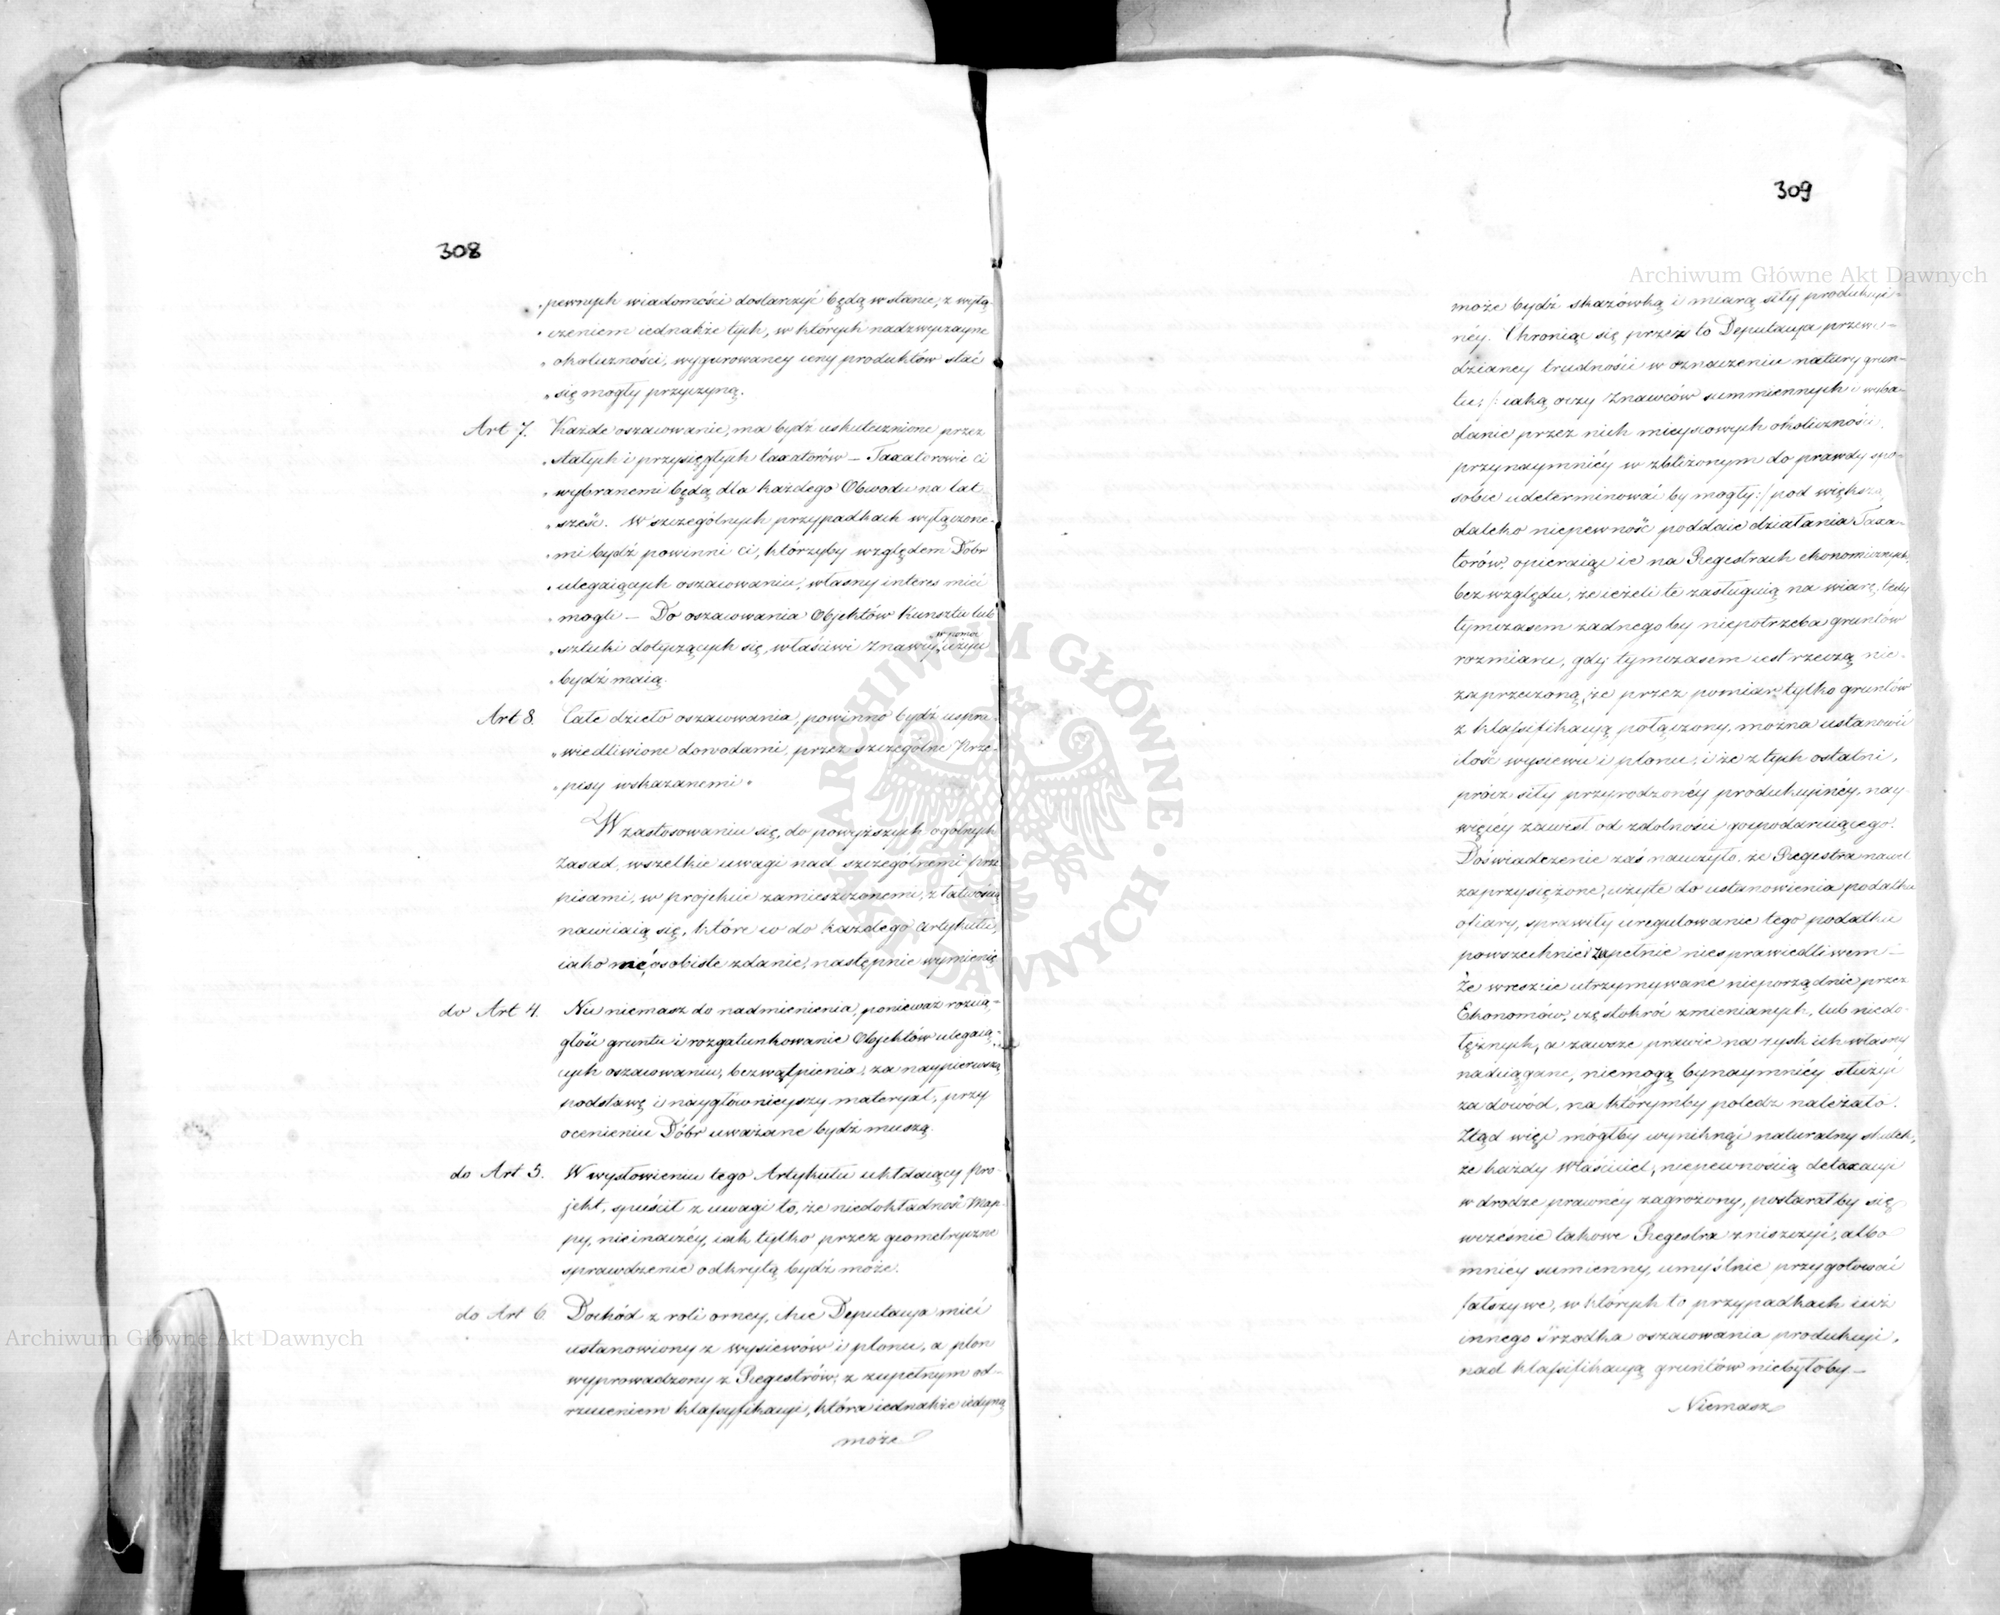 308
„pewnych wiadomości dostarczyć będą w stanie, z wyłą-
„czeniem iednakże tych, w których nadzwyczayne
„okoliczności, wygurowaney ceny produktów stać
„się mogły przyczyną.
Art 7. Każde oszacowanie, ma bydź uskutecznione przez
„stałych i przysięgłych taxatorów — Taxatorowie ci
„wybranemi będą dla każdego Obwodu na lat
„sześć. W szczególnych przypadkach wyłączone-
„mi bydź powinni ci, którzyby względem Dóbr
„ulegaiących oszacowaniu, własny interes mieć
„mogli — Do oszacowania Objektów Kunsztu lub
„sztuki dotyczących się, właściwi Znawcy, w pomoc użyci
„bydź maią.
Art 8. Całe dzieło oszacowania, powinno bydź uspra-
„wiedliwione dowodami, przez szczególne Prze-
„pisy wskazanemi„
W zastosowaniu się, do powyższych ogólnych
Zasad, wszelkie uwagi nad szczególnemi prze-
pisami, w projekcie zamieszczonemi, z łatwością
nawiiaią się, które co do każdego artykułu,
iako mé osobiste zdanie, następnie wymienię
do Art 4. Nic niemasz do nadmienienia, ponieważ rozcią-
głość gruntu i rozgatunkowanie Objektów ulegaią-
cych oszacowaniu, bezwątpienia, za naypierwszą
podstawę i naygłównieyszy materyał, przy
ocenieniu Dóbr uważane bydź muszą.
do Art 5. W wysłowieniu tego Artykułu układaiący pro-
jekt, spuścił z uwagi to, że niedokładność Map-
py, nieinaczéy, iak tylko przez geometryczne
sprawdzenie odkrytą bydź może.
do Art 6. Dochód z roli orney, chce Deputacya mieć
ustanowiony z wysiewów i plonu, a plon
wyprowadzony z Regestrów, z zupełnym od-
rzuceniem klassyfikacyi, która iednakże iedyną
może
309
może bydź skazówką i miarą siły produkcyi-
néy. Chroniąc się przez to Deputacya przewi-
dzianey trudności w oznaczeniu natury grun-
tu, /: iaką oczy Znawców summiennych i wyba-
danie przez nich mieyscowych okoliczności,
przynaymniéy w zbliżonym do prawdy spo-
sobie udeterminować by mogły :/ pod większą
daleko niepewność poddaie działania Taxa-
torów, opieraiąc ie na Regestrach ekonomicznych,
bez względu, że ieżeli te zasługuią na wiarę, tedy
tymczasem żadnego by niepotrzeba gruntów
rozmiaru, gdy tymczasem iest rzeczą nie-
zaprzeczoną, że przez pomiar tylko gruntów
z klassifikacyą połączony, można ustanowić
ilość wysiewu i plonu, i że z tych ostatni,
prócz siły przyrodzonéy produkcyinéy, nay-
więcéy zawisł od zdolności gospodaruiącego.
Doświadczenie zaś nauczyło, że Regestra nawet
zaprzysiężone, użyte do ustanowienia podatku
ofiary, sprawiły uregulowanie tego podatku
powszechnie zupełnie niesprawiedliwem —
Że wreszcie utrzymywane nieporządnie przez
Ekonomów, częstokroć zmienianych, lub niedo-
łężnych, a zawsze prawie na zysk ich własny
naciągane, niemogą bynaymniéy służyć
za dowód, na którymby poledz należało.
Ztąd więc mógłby wyniknąć naturalny skutek,
że każdy Właściciel, niepewnością detaxacyi
w drodze prawnéy zagrożony, postarałby się
wcześnie takowe Regestra zniszczyć, albo
mniey sumienny, umyślnie przygotować
fałszywe, w których to przypadkach iuż
innego śrzodka oszacowania produkcyi,
nad klassifikacyą gruntów niebyłoby —
Niemasz
Archiwum Główne Akt Dawnych
Archiwum Główne Akt Dawnych
ARCHIWUM GŁÓWNE AKT DAWNYCH